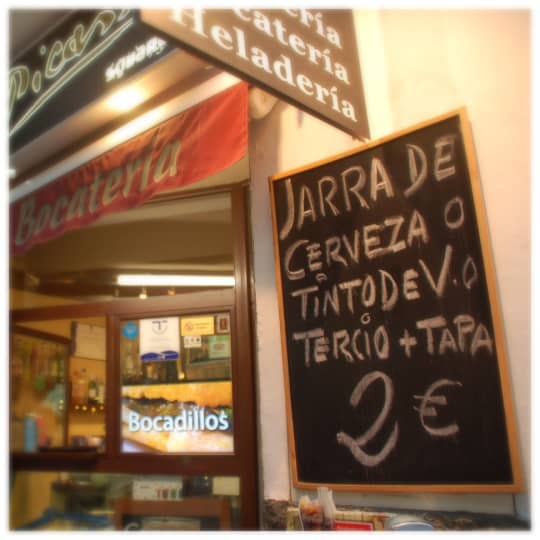 Picasso
ería
catería
Heladería
Bocatería
JARRA DE
CERVEZA O
TINTO DE V. O
O
TERCIO + TAPA
2 €
Bocadillos